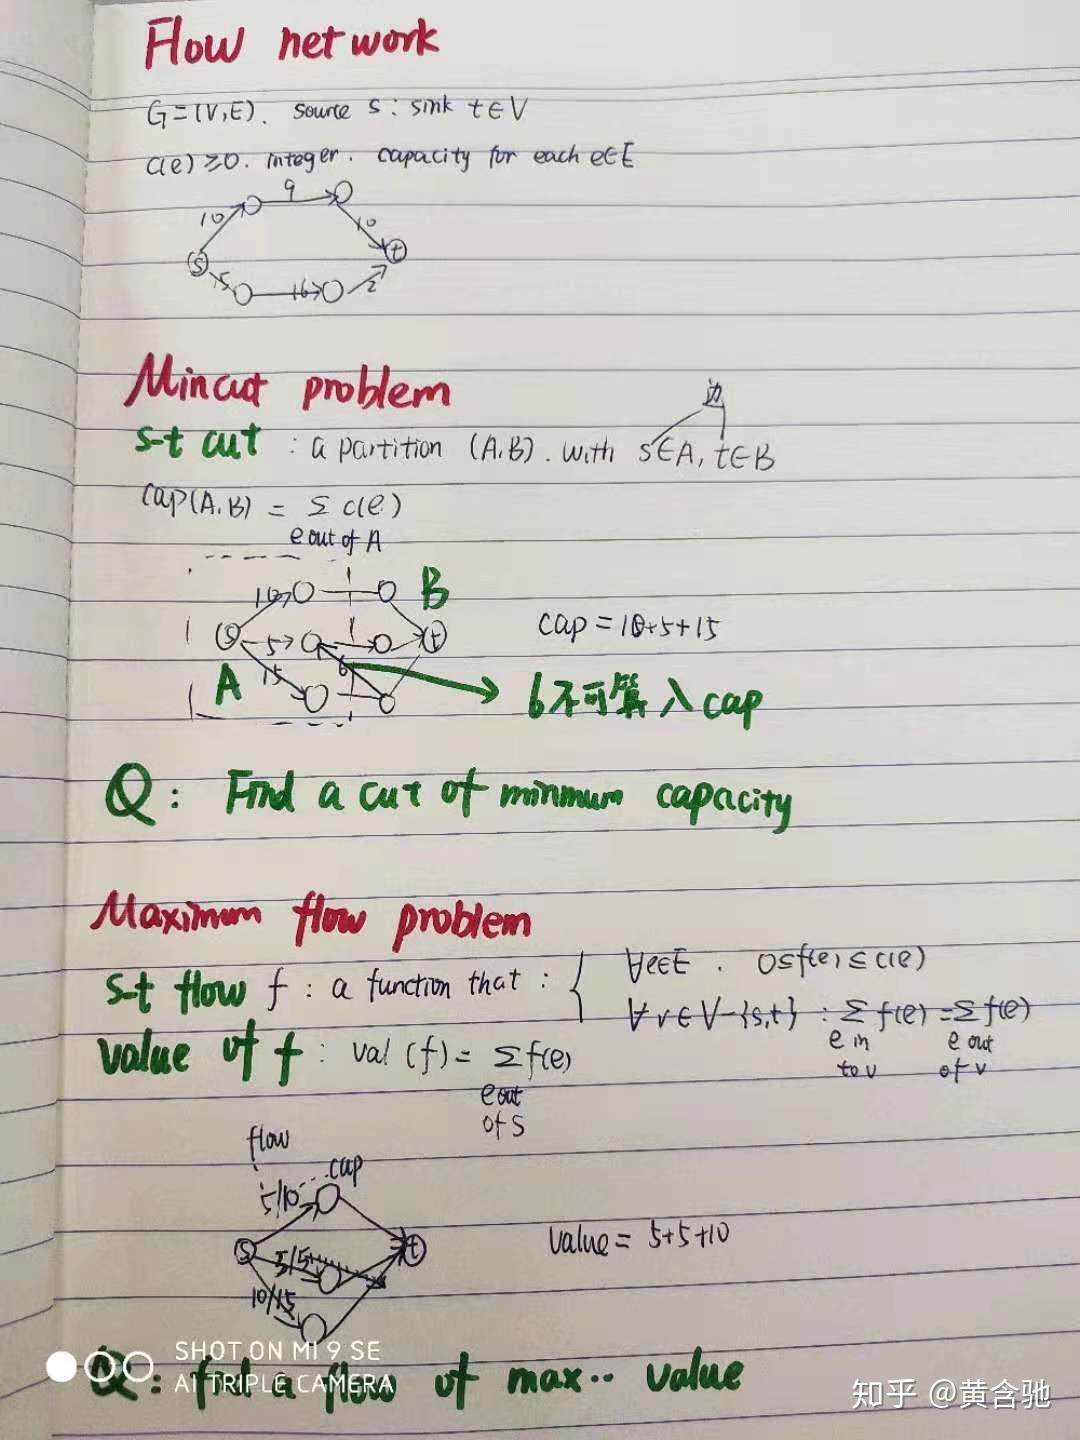 Flow network
G=(V,E). source s: sink t∈V
c(e)≥0. integer. capacity for each e∈E
9
10
10
s
t
5
16
2
Mincut problem
边
s-t cut : a partition (A,B). with s∈A, t∈B
cap(A,B) = Σ c(e)
e out of A
10
B
s
5
t
cap=10+5+15
6
A
15
6不可算入cap
Q: Find a cut of minmum capacity
Maximum flow problem
s-t flow f : a function that : { ∀e∈E . 0≤f(e)≤c(e)
∀v∈V-{s,t} : Σ f(e) = Σ f(e)
e in to v
e out of v
value of f : val(f)= Σ f(e)
e out of s
flow
cap
5/10
s
t
5/5
value = 5+5+10
10/15
SHOT ON MI 9 SE
AI TRIPLE CAMERA
Q: find a flow of max.. value
知乎 @黄含驰